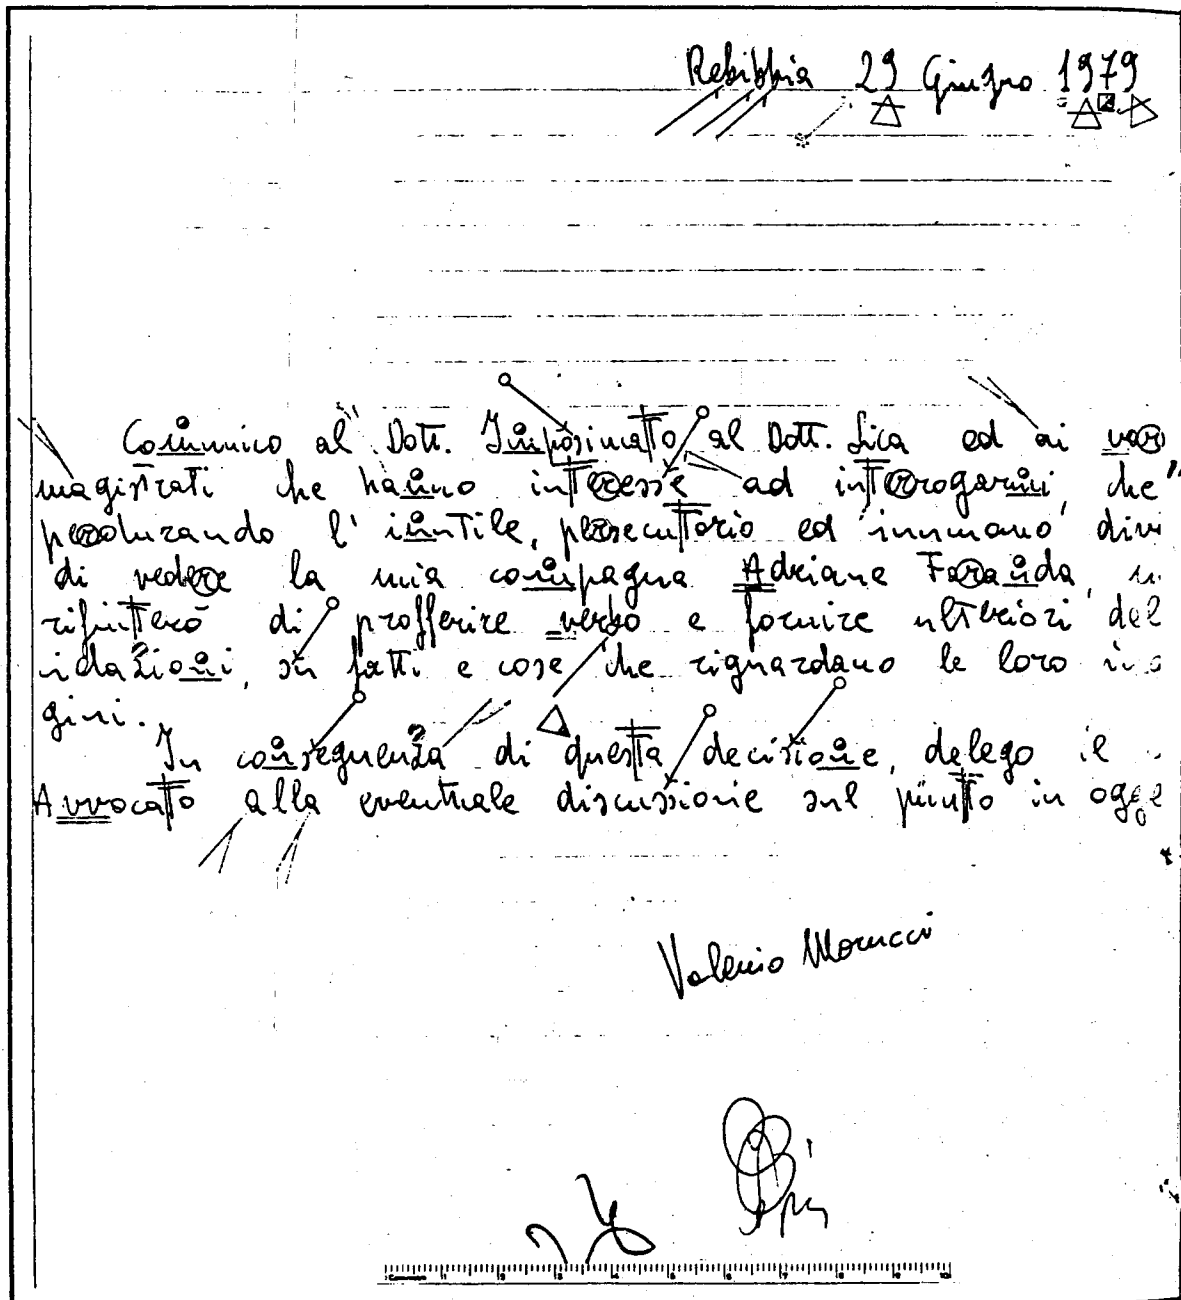 Rebibbia 29 Giugno 1979
Comunico al Dott. Imposimato, al Dott. Sica ed ai var
magistrati che hanno interesse ad interrogarmi, che
perdurando l'inutile, persecutorio ed inumano divi
di vedere la mia compagna Adriana Faranda, m
rifiuterò di profferire verbo e fornire ulteriori del
ucidazioni, su fatti e cose che riguardano le loro in
gini.
In conseguenza di questa decisione, delego il
Avvocato alla eventuale discussione sul punto in ogge
Valerio Morucci
1 2 3 4 5 6 7 8 9 10